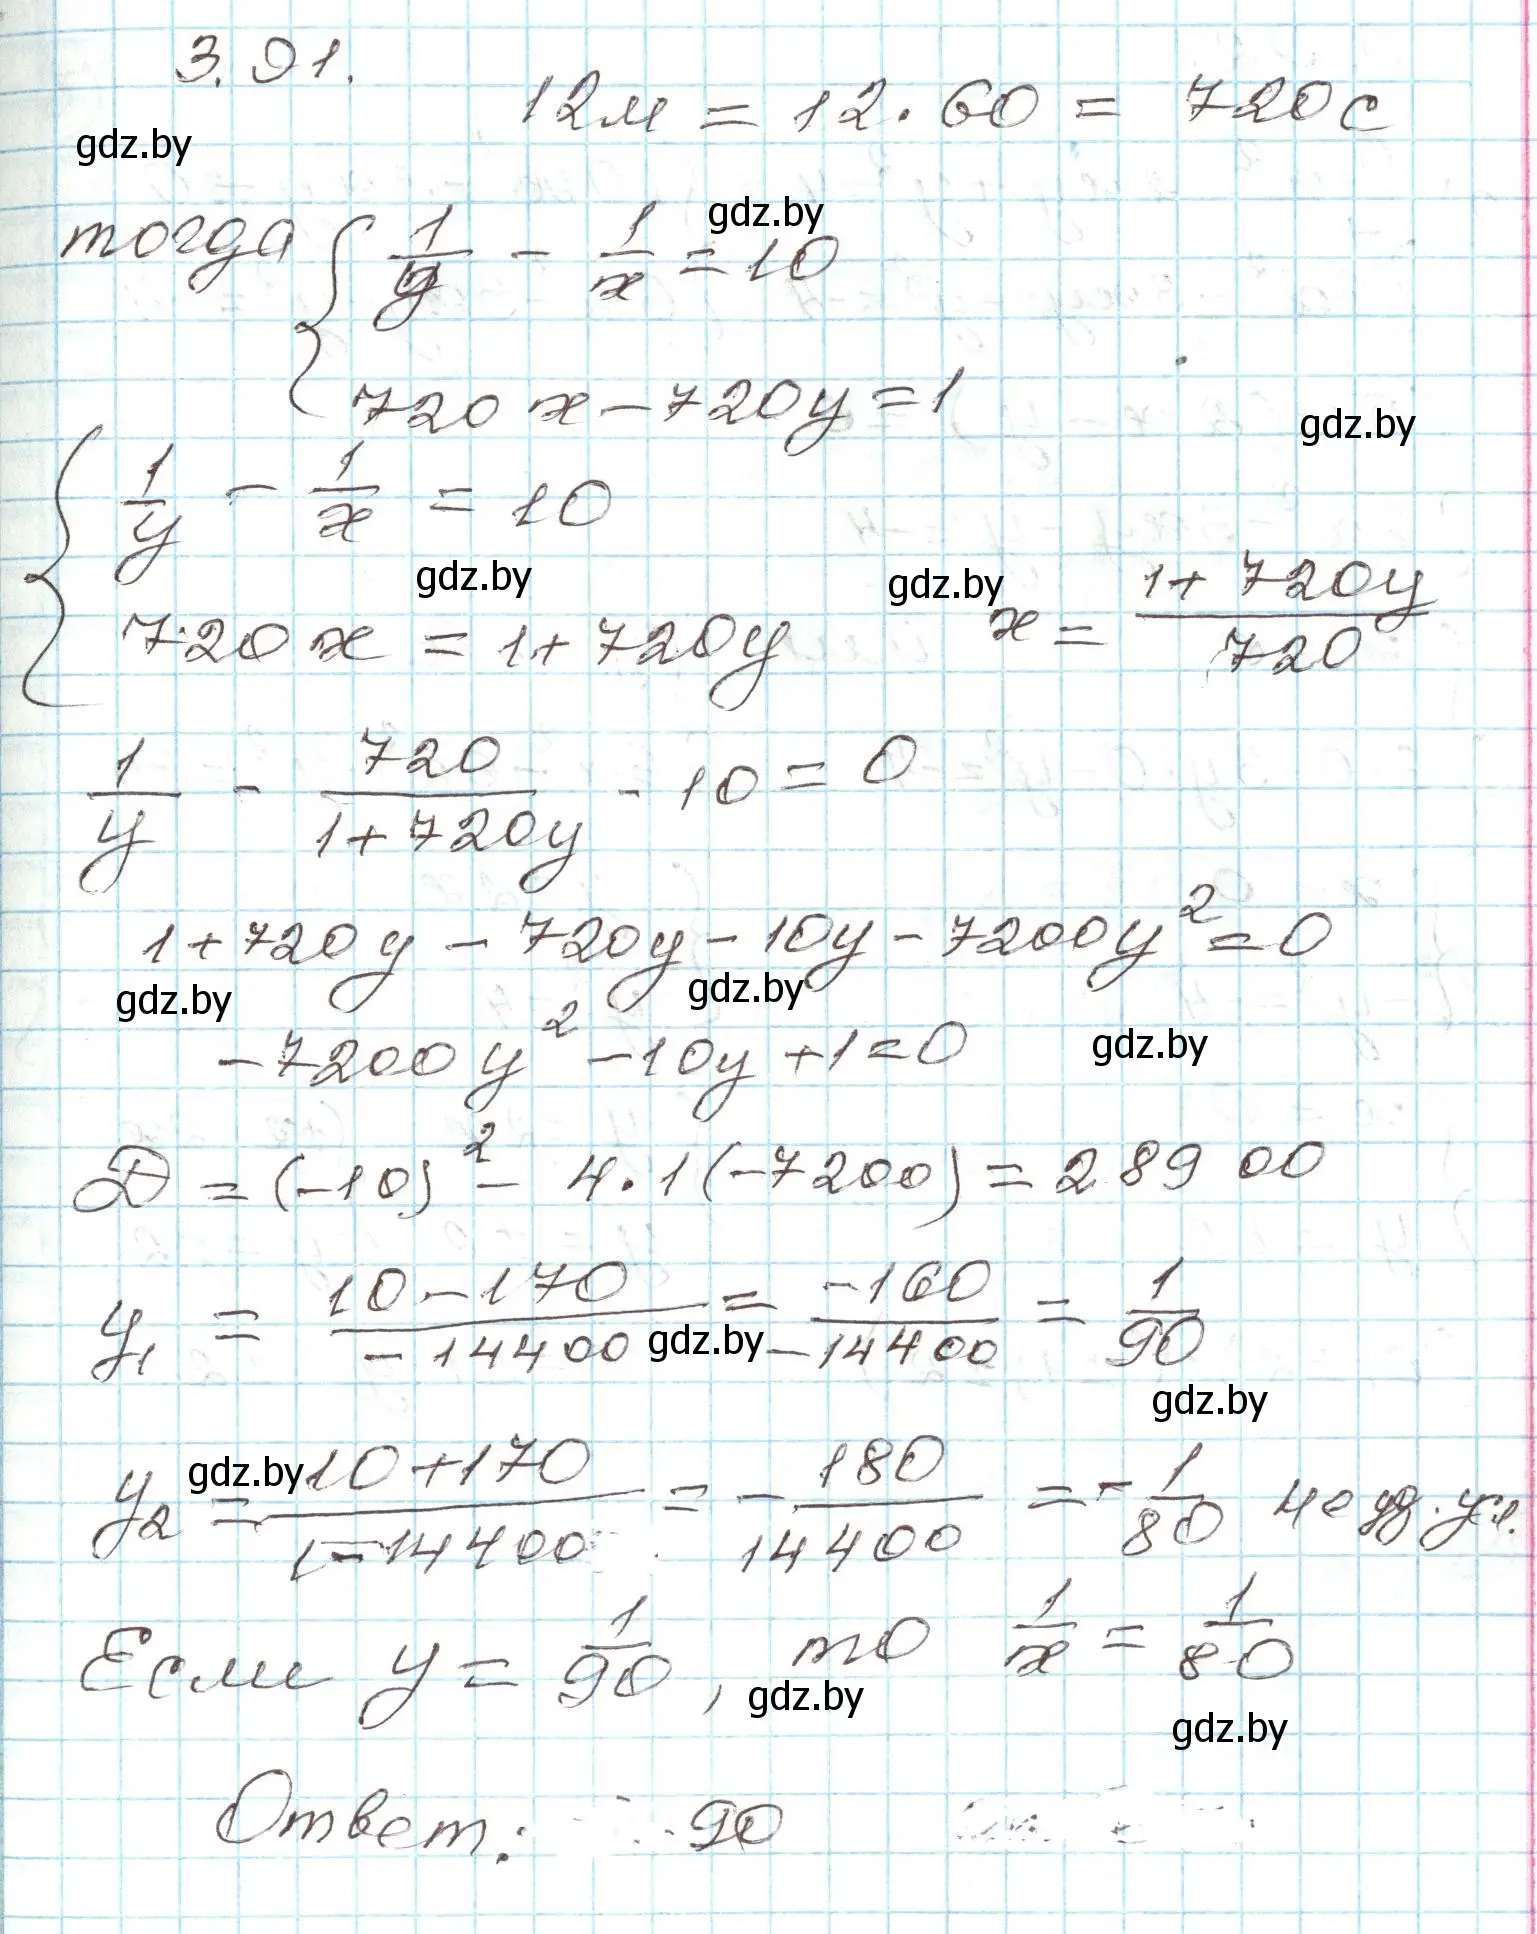 3.91.
12м = 12 · 60 = 720 с
gdz.by
тогда { 1/y - 1/x = 10
gdz.by
720x - 720y = 1
gdz.by
{ 1/y - 1/x = 10
gdz.by
gdz.by
720x = 1 + 720y x = (1 + 720y)/720
1/y - 720/(1 + 720y) - 10 = 0
1 + 720y - 720y - 10y - 7200y² = 0
gdz.by
gdz.by
-7200y² - 10y + 1 = 0
gdz.by
D = (-10)² - 4 · 1(-7200) = 28900
y₁ = (10 - 170)/(-14400) = (-160)/(-14400) = 1/90
gdz.by
gdz.by
gdz.by
y₂ = (10 + 170)/(-14400) = - 180/14400 = - 1/80 не уд. усл.
Если y = 1/90, то 1/x = 1/80
gdz.by
gdz.by
Ответ: 90